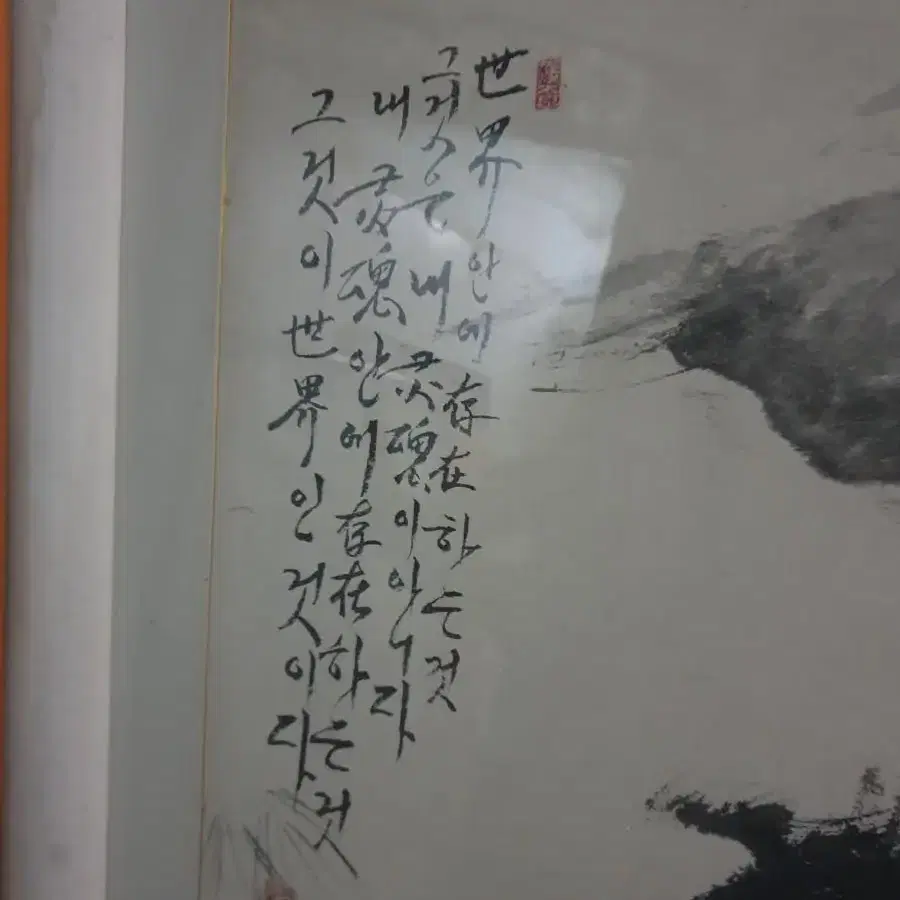 世界안에存在하는것
그것은내灵魂이아니다
내灵魂안에存在하는것
그것이世界인것이다